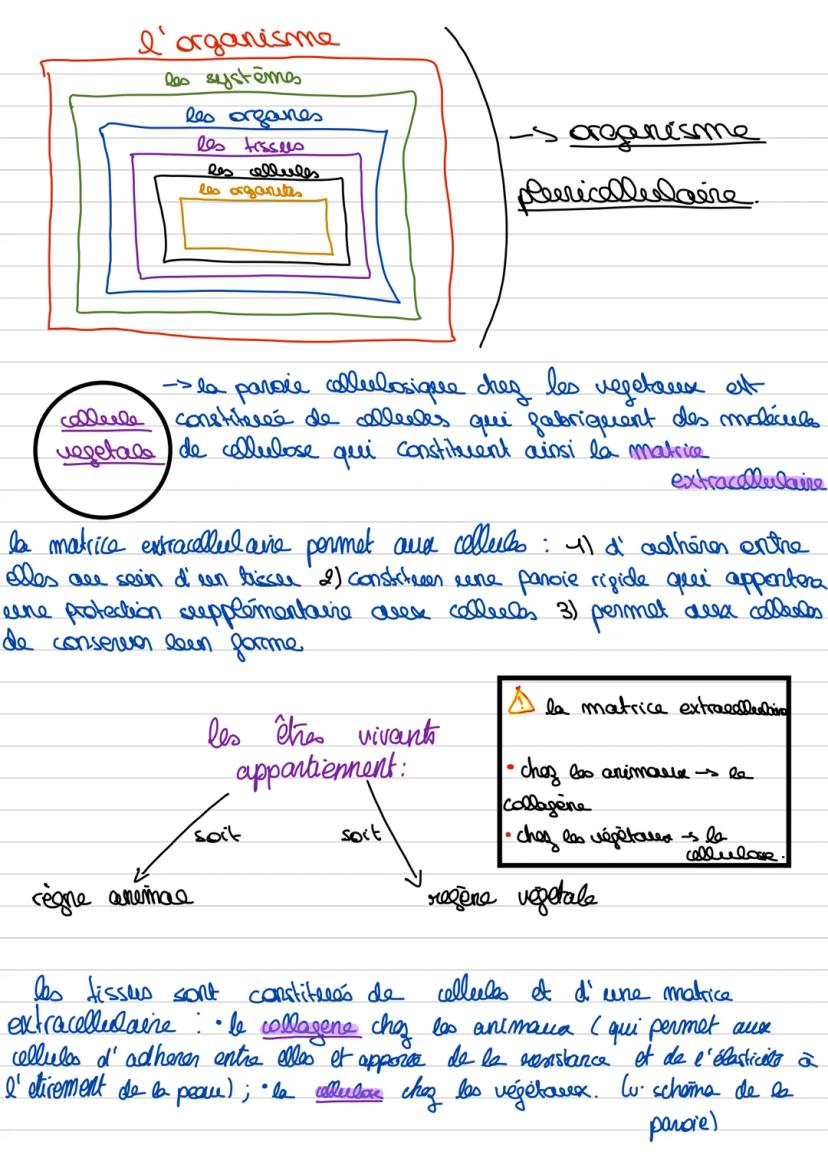 l'organisme
les systèmes
les organes
les tissus
les cellules
les organites
-> organisme
pluricellulaire.
-> la paroie cellulosique chez les vegetaux est
cellule
constituée de cellules qui fabriquent des molécules
vegetale
de cellulose qui constituent ainsi la matrice
extracellulaire
la matrice extracellulaire permet aux cellules : 1) d'adhérer entre
elles au sein d'un tissu 2) constituer une paroie rigide qui apportera
une protection supplémentaire aux cellules 3) permet aux cellules
de conserver leur forme
⚠ la matrice extracellulaire
• chez les animaux -> le
collagène
• chez les végétaux -> la
cellulose.
les êtres vivants
appartiennent:
soit soit
règne animal
regène végétale
les tissus sont constitués de cellules et d'une matrice
extracellulaire : • le collagene chez les animaux (qui permet aux
cellules d'adherer entre elles et apporte de la resistance et de l'élasticité à
l'étirement de la peau) ; • la cellulose chez les végétaux. (v. schéma de la
paroie)